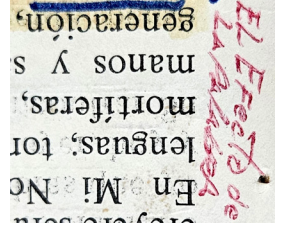 En Mi No
lenguas; tor
mortíferas,
manos y s
generación,
EL EFecto de
La Palabra